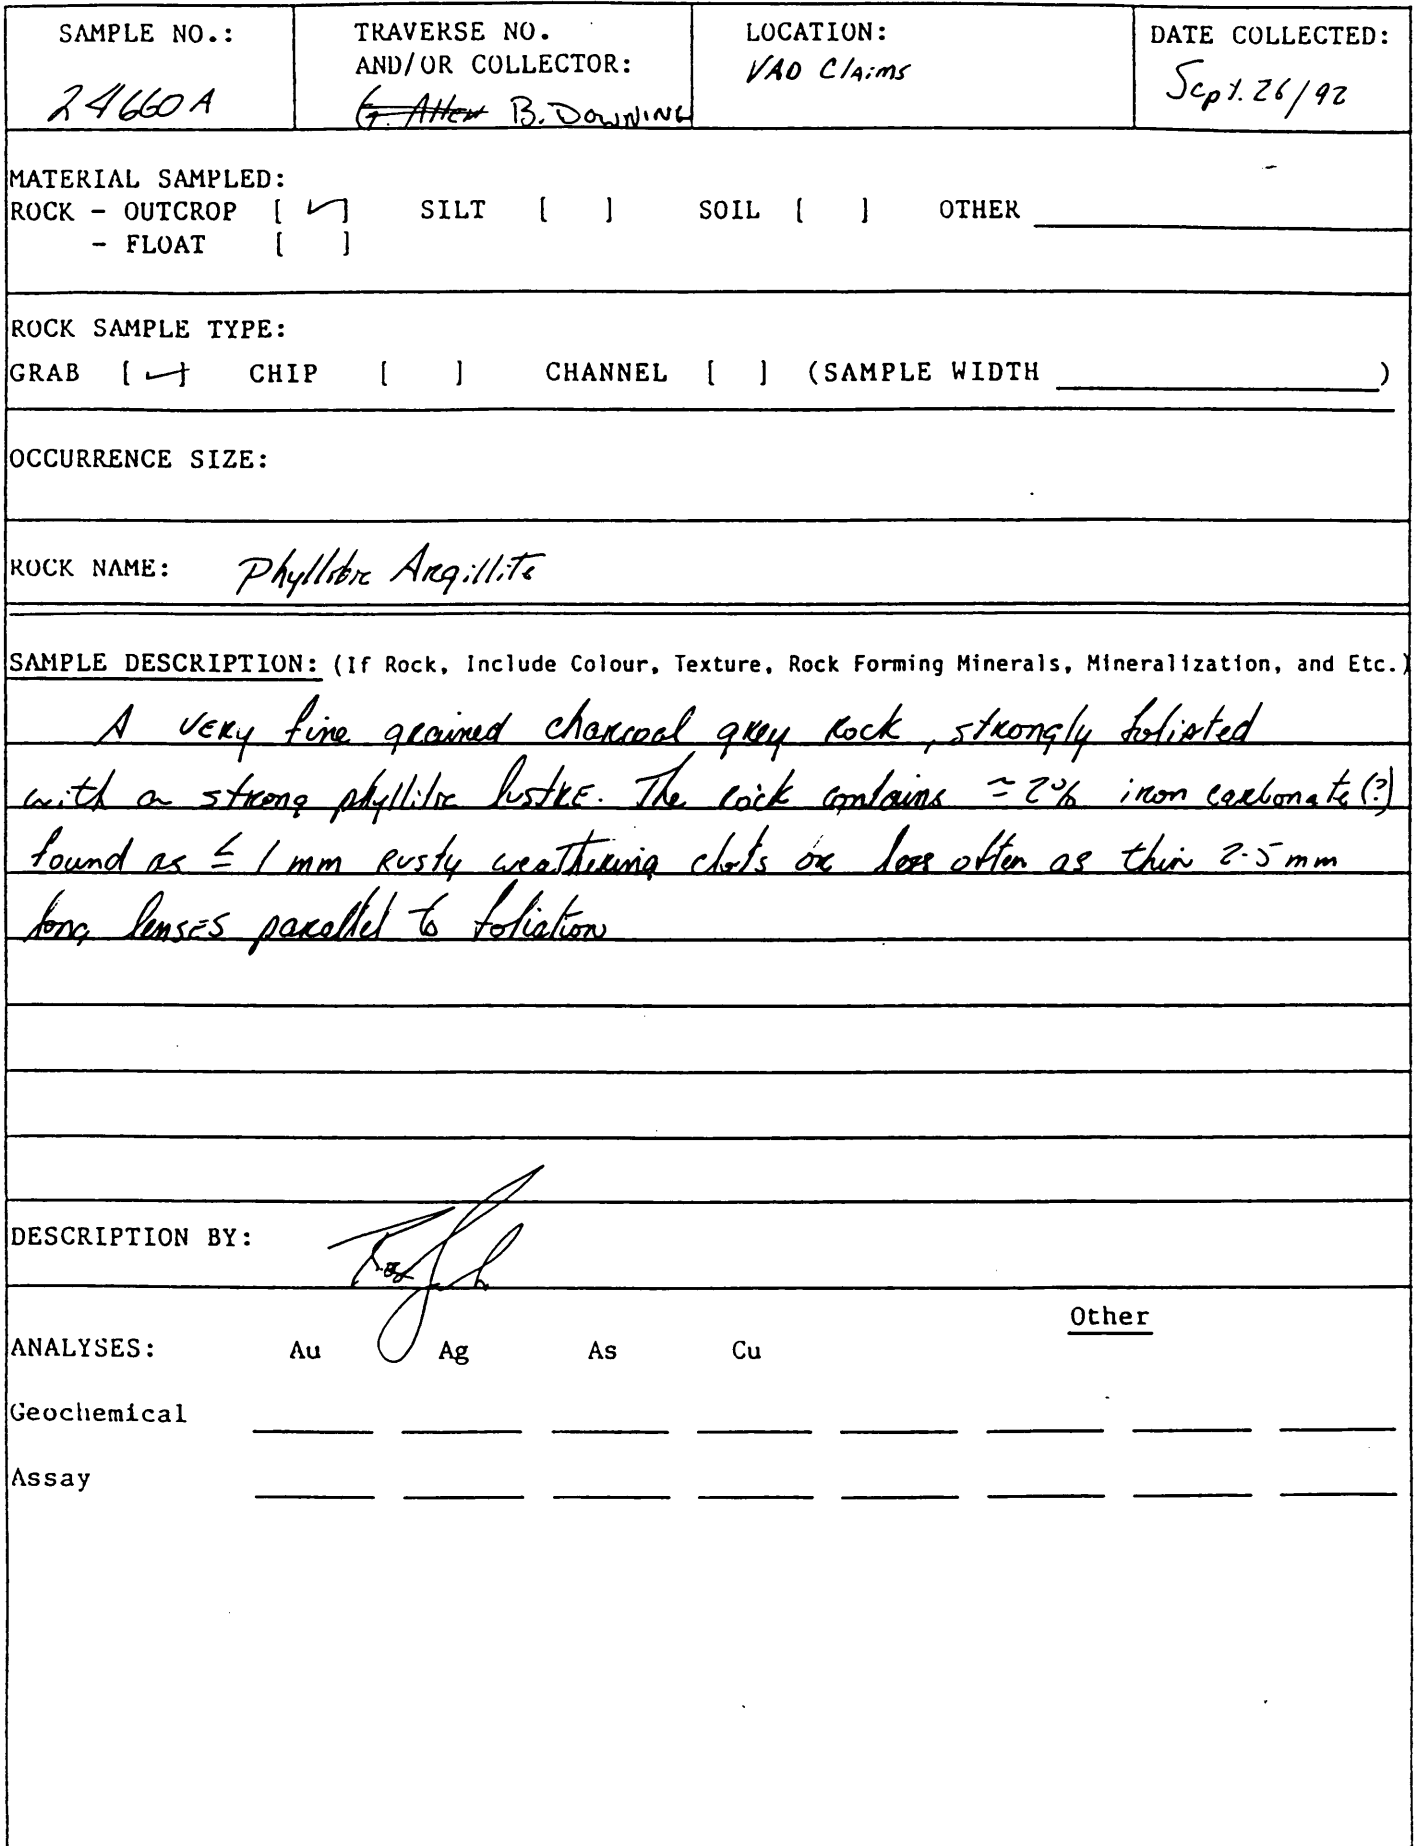 SAMPLE NO.: TRAVERSE NO. LOCATION: DATE COLLECTED:
AND/OR COLLECTOR: VAD Claims
24660A G. Allen B. DOWNING Sept. 26/92
MATERIAL SAMPLED:
ROCK - OUTCROP [ ✓ ] SILT [ ] SOIL [ ] OTHER
- FLOAT [ ]
ROCK SAMPLE TYPE:
GRAB [ ✓ ] CHIP [ ] CHANNEL [ ] (SAMPLE WIDTH )
OCCURRENCE SIZE:
ROCK NAME: Phyllitic Argillite
SAMPLE DESCRIPTION: (If Rock, Include Colour, Texture, Rock Forming Minerals, Mineralization, and Etc.)
A very fine grained charcoal grey rock, strongly foliated
with a strong phyllitic lustre. The rock contains ≃ 2% iron carbonate (?)
found as ≤ 1 mm rusty weathering clots or less often as thin 2-5 mm
long lenses parallel to foliation
DESCRIPTION BY:
Other
ANALYSES: Au Ag As Cu
Geochemical
Assay